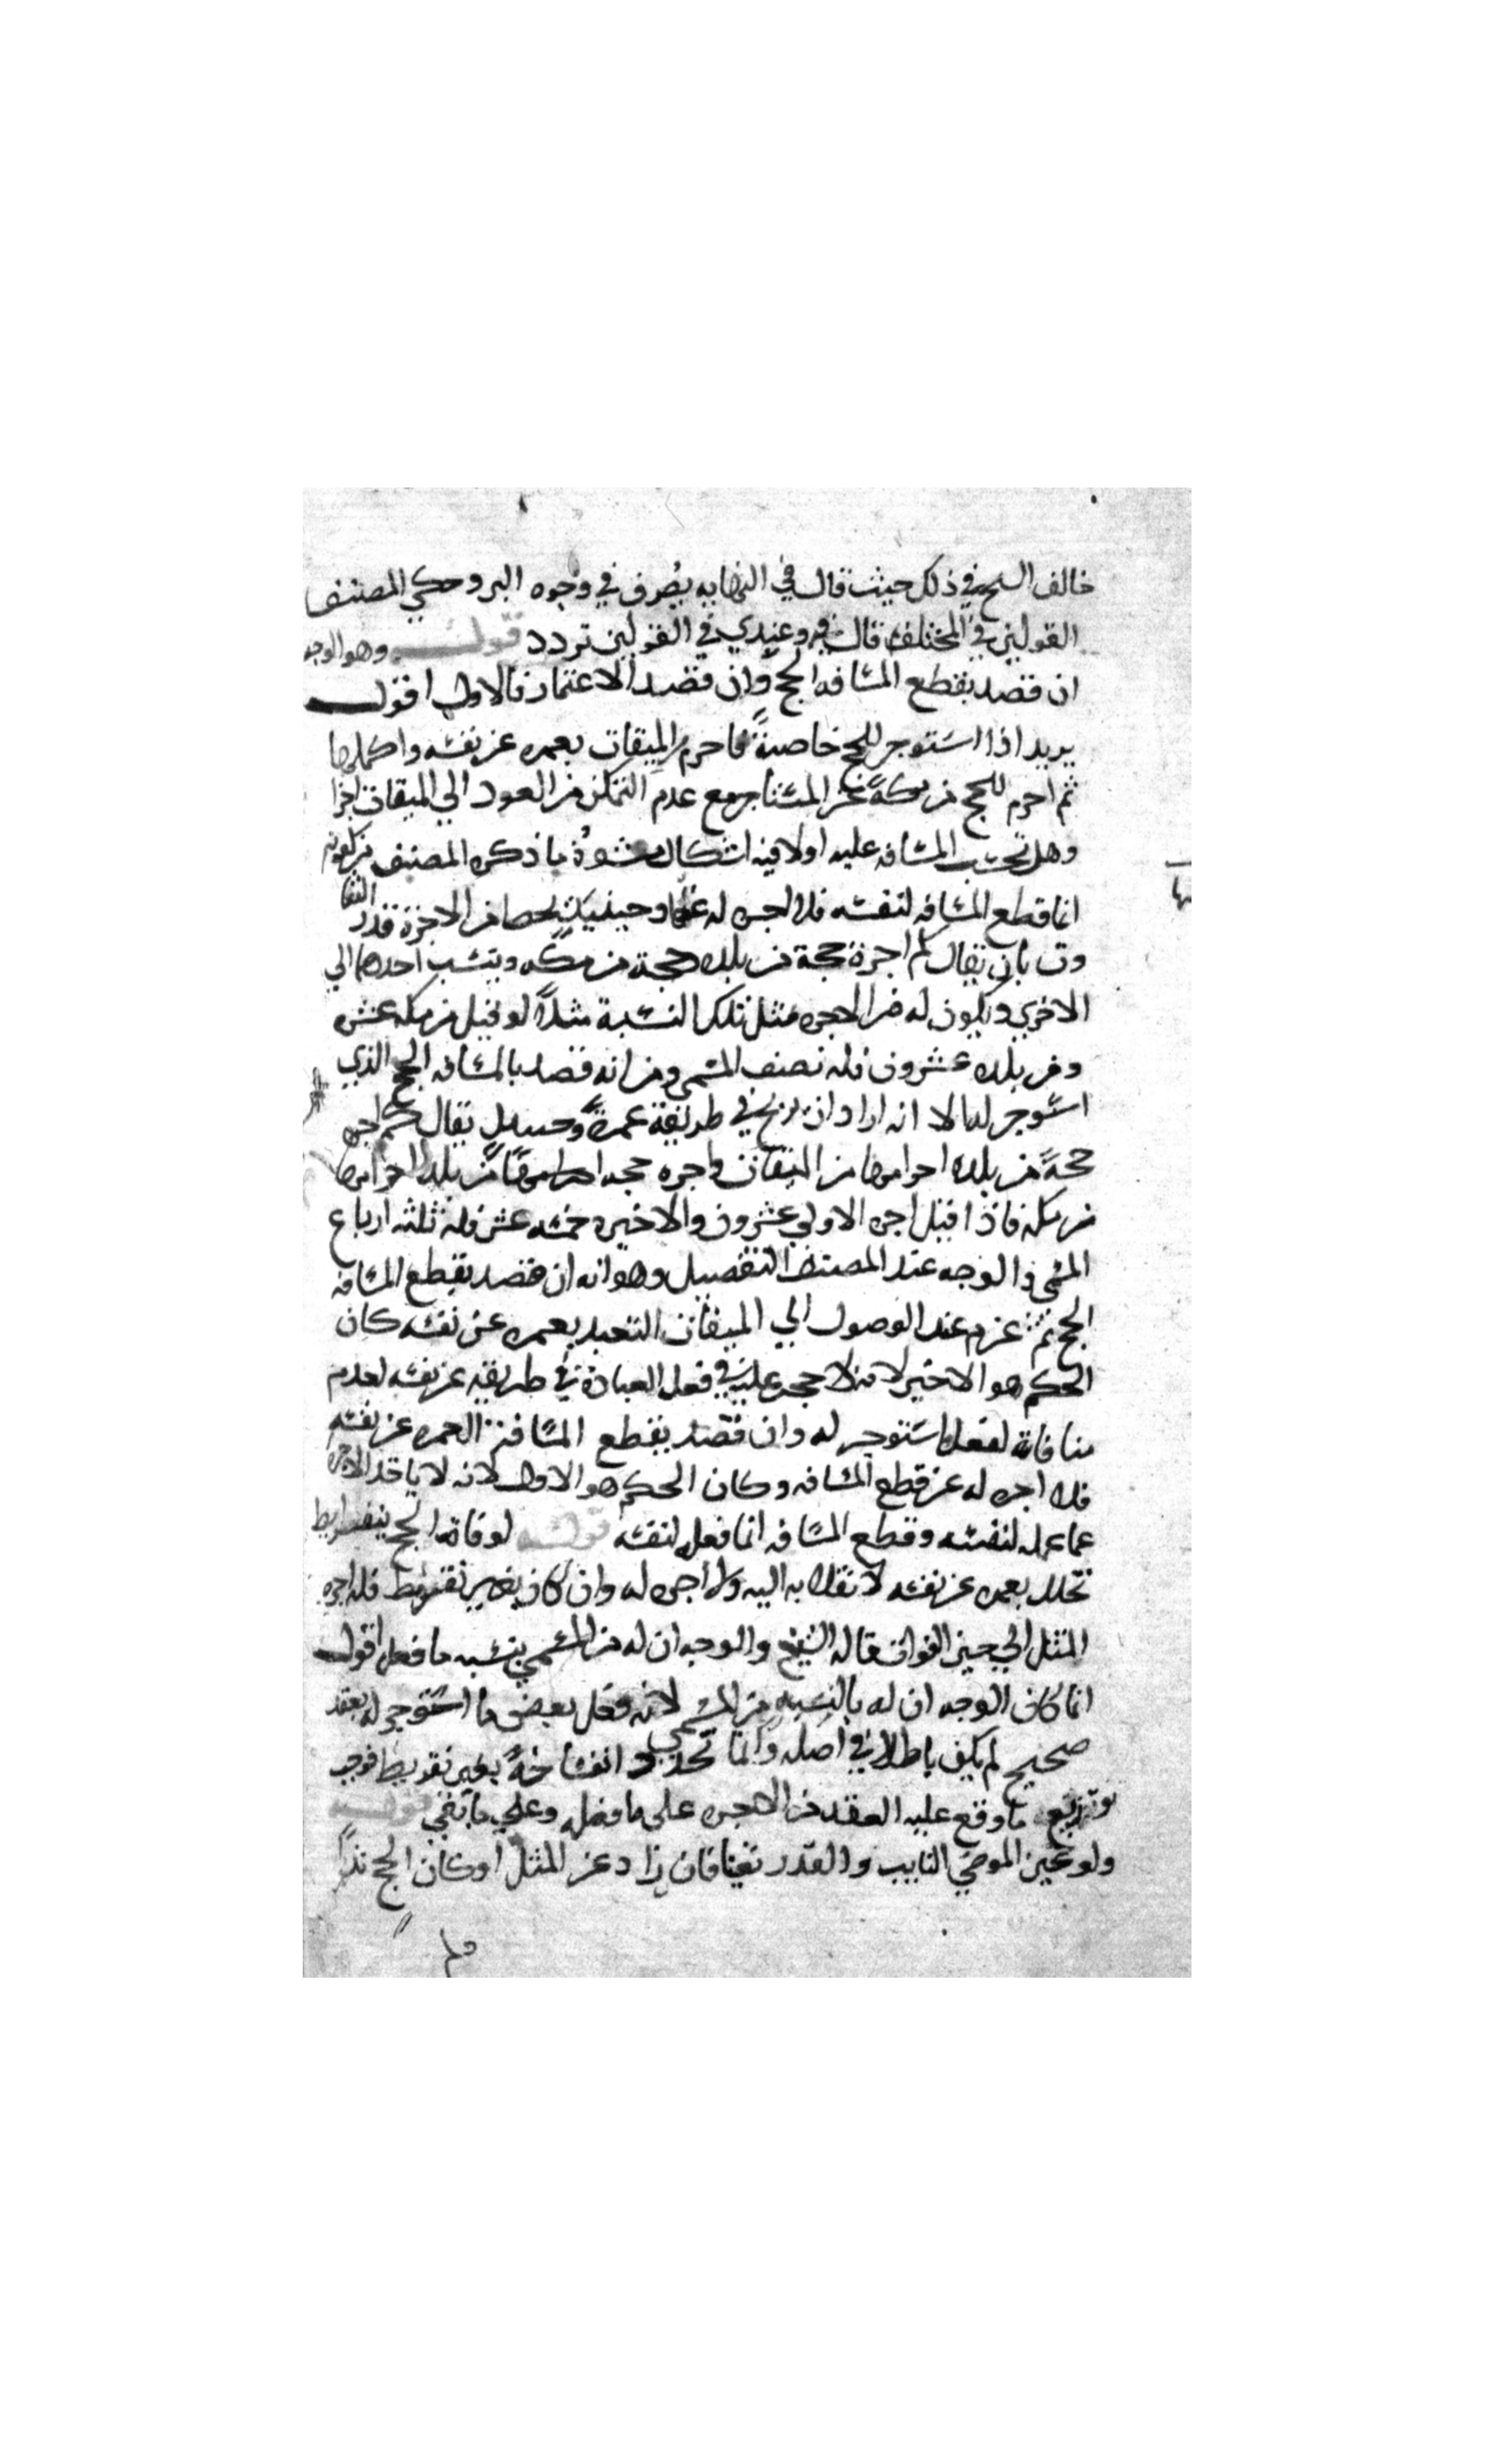 خالف الشيخ في ذلك حيث قال في النهايه يصرف في وجوه البر وحكي المصنف
القولين في المختلف قال فيه وعندي في القولين تردد قوله وهو الوجه
ان قصد بقطع المسافه الحج وان قصد الاعتمار فالاول اقول
يريد اذا استوجر للحج خاصة فاحرم من الميقات بعمره عن نفسه واكملها
ثم احرم للحج من مكة عن المستأجر مع عدم التمكن من العود الي الميقات اجزا
وهل تحتسب المسافه عليه اولا فيه اشكال منشؤه ما ذكره المصنف من كونه
انما قطع المسافه لنفسه فلا اجره له عنها وحينئذ يحط من الاجرة قدر التفا
وت بان يقال كم اجرة حجة من بلده وحجة من مكه وينسب احدهما الي
الاخري ويكون له من الاجره مثل تلك النسبة مثلاً لو قيل من مكه عشره
ومن بلده عشرون فله نصف المسمي ومن انه قصد بالمسافه الحج الذي
استوجر له الا انه اراد ان يربح في طريقه عمرة وحينئذ يقال كم اجره
حجة من بلده احرامها من الميقات واجره حجه من بلده احرامها
من مكه فاذا قيل اجره الاولي عشرون والاخيره خمسه عشر فله ثلثه ارباع
المسمي والوجه عند المصنف التفصيل وهو انه ان قصد بقطع المسافه
الحج ثم عزم عند الوصول الي الميقات التعبد بعمره عن نفسه كان
الحكم هو الاخير لانه لا حجر عليه في فعل العبادة في طريقه عن نفسه لعدم
منافاة لفعل ما استوجر له وان قصد بقطع المسافة العمره عن نفسه
فلا اجره له عن قطع المسافه وكان الحكم هو الاول لانه لا ياخذ الاجره
عما عمله لنفسه وقطع المسافه انما فعله لنفسه قوله لو فاته الحج بتفريط
تحلل بعمره عن نفسه لانقلابه اليه ولا اجره له وان كان بغير تفريط فله اجره
المثل الي حين الفوات قاله الشيخ والوجه ان له من المسمي بنسبه ما فعل اقول
انما كان الوجه ان له بالنسبه من المسمي لانه فعل بعض ما استوجر له بعقد
صحيح لم يكن باطلا في اصله وانما تجدد انفساخه بغير تفريط فوجب
توزيع ما وقع عليه العقد من الاجره على ما فعله وعلي ما بقي قوله
ولو عين الموصي النايب والقدر تعينا فان زاد عن المثل او كان الحج ندباً